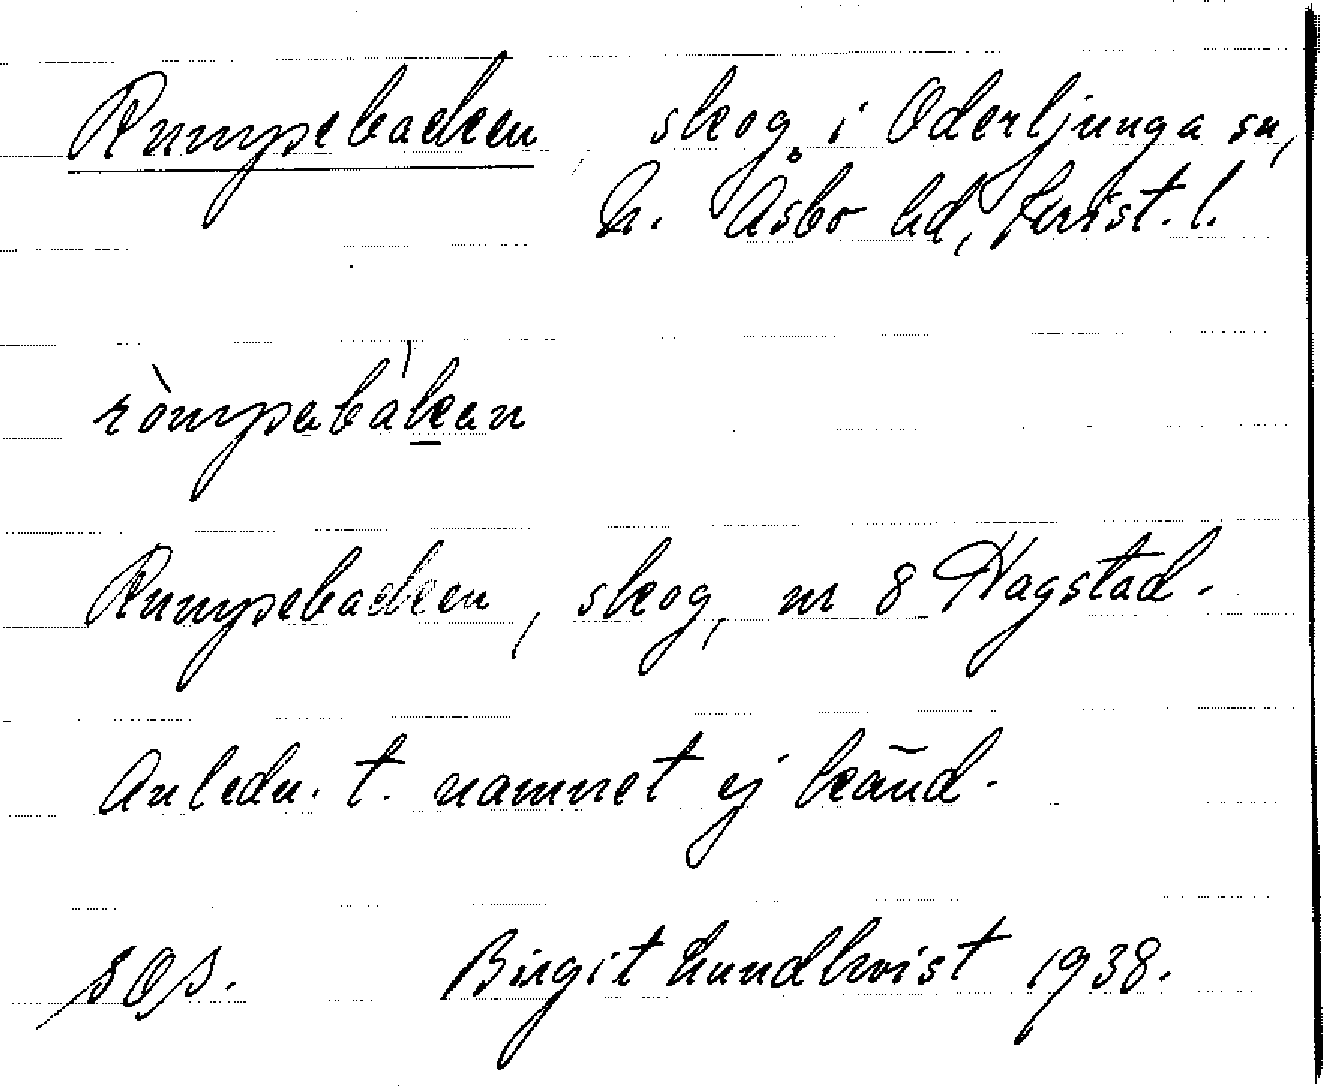 Rumpebacken, skog i Oderljunga sn,
N. Åsbo hd, Krist. l.
ròmpabàkan
Rumpebacken, skog, nr 8 Hagstad.
Anledn. t. namnet ej känd.
SOS. Birgit Lundkvist 1938.